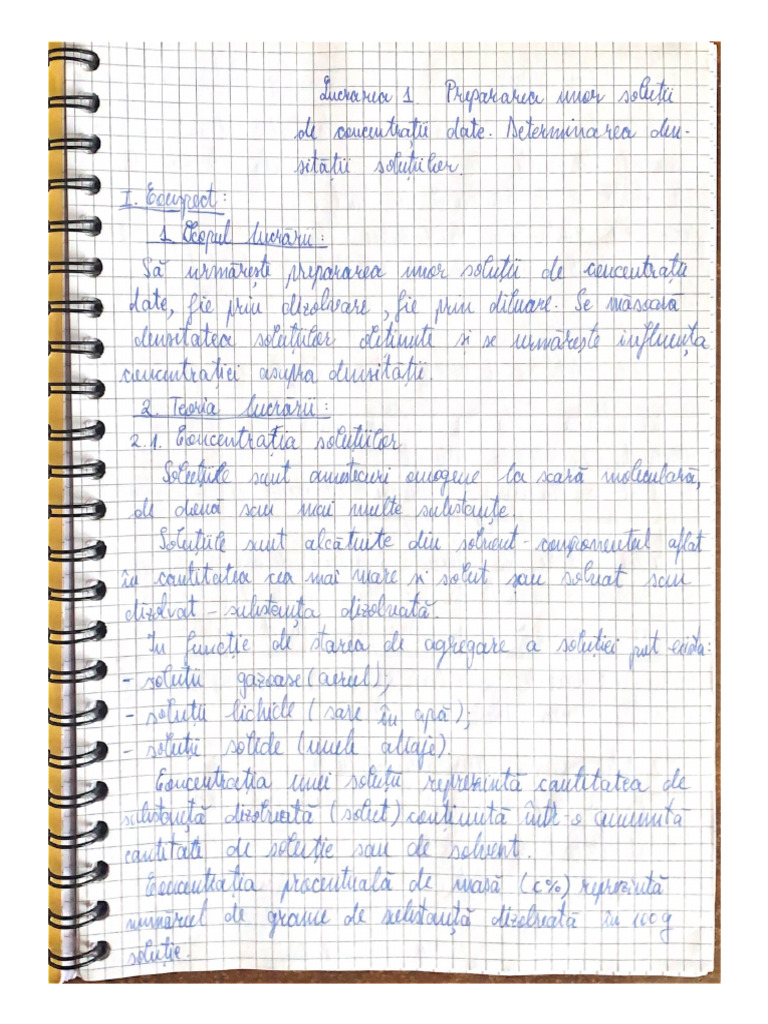 Lucrarea 1. Prepararea unor soluții
de concentrații date. Determinarea den-
sității soluțiilor.
I. Conspect:
1. Scopul lucrării:
Să urmărește prepararea unor soluții de concentrații
date, fie prin dizolvare, fie prin diluare. Se măsoară
densitatea soluțiilor obținute si se urmărește influența
concentrației asupra densității.
2. Teoria lucrării:
2.1. Concentrația soluțiilor
Soluțiile sunt amestecuri omogene la scară moleculară,
de două sau mai multe substanțe.
Soluțiile sunt alcătuite din solvent - componentul aflat
în cantitatea cea mai mare si solut sau solvat sau
dizolvat - substanța dizolvată.
In funcție de starea de agregare a soluției pot exista:
- soluții gazoase (aerul);
- soluții lichide (sare în apă);
- soluții solide (unele aliaje).
Concentrația unei soluții reprezintă cantitatea de
substanță dizolvată (solut) conținută într-o anumită
cantitate de soluție sau de solvent.
Concentrația procentuală de masă (c%) reprezintă
numărul de grame de substanță dizolvată în 100 g
soluție.